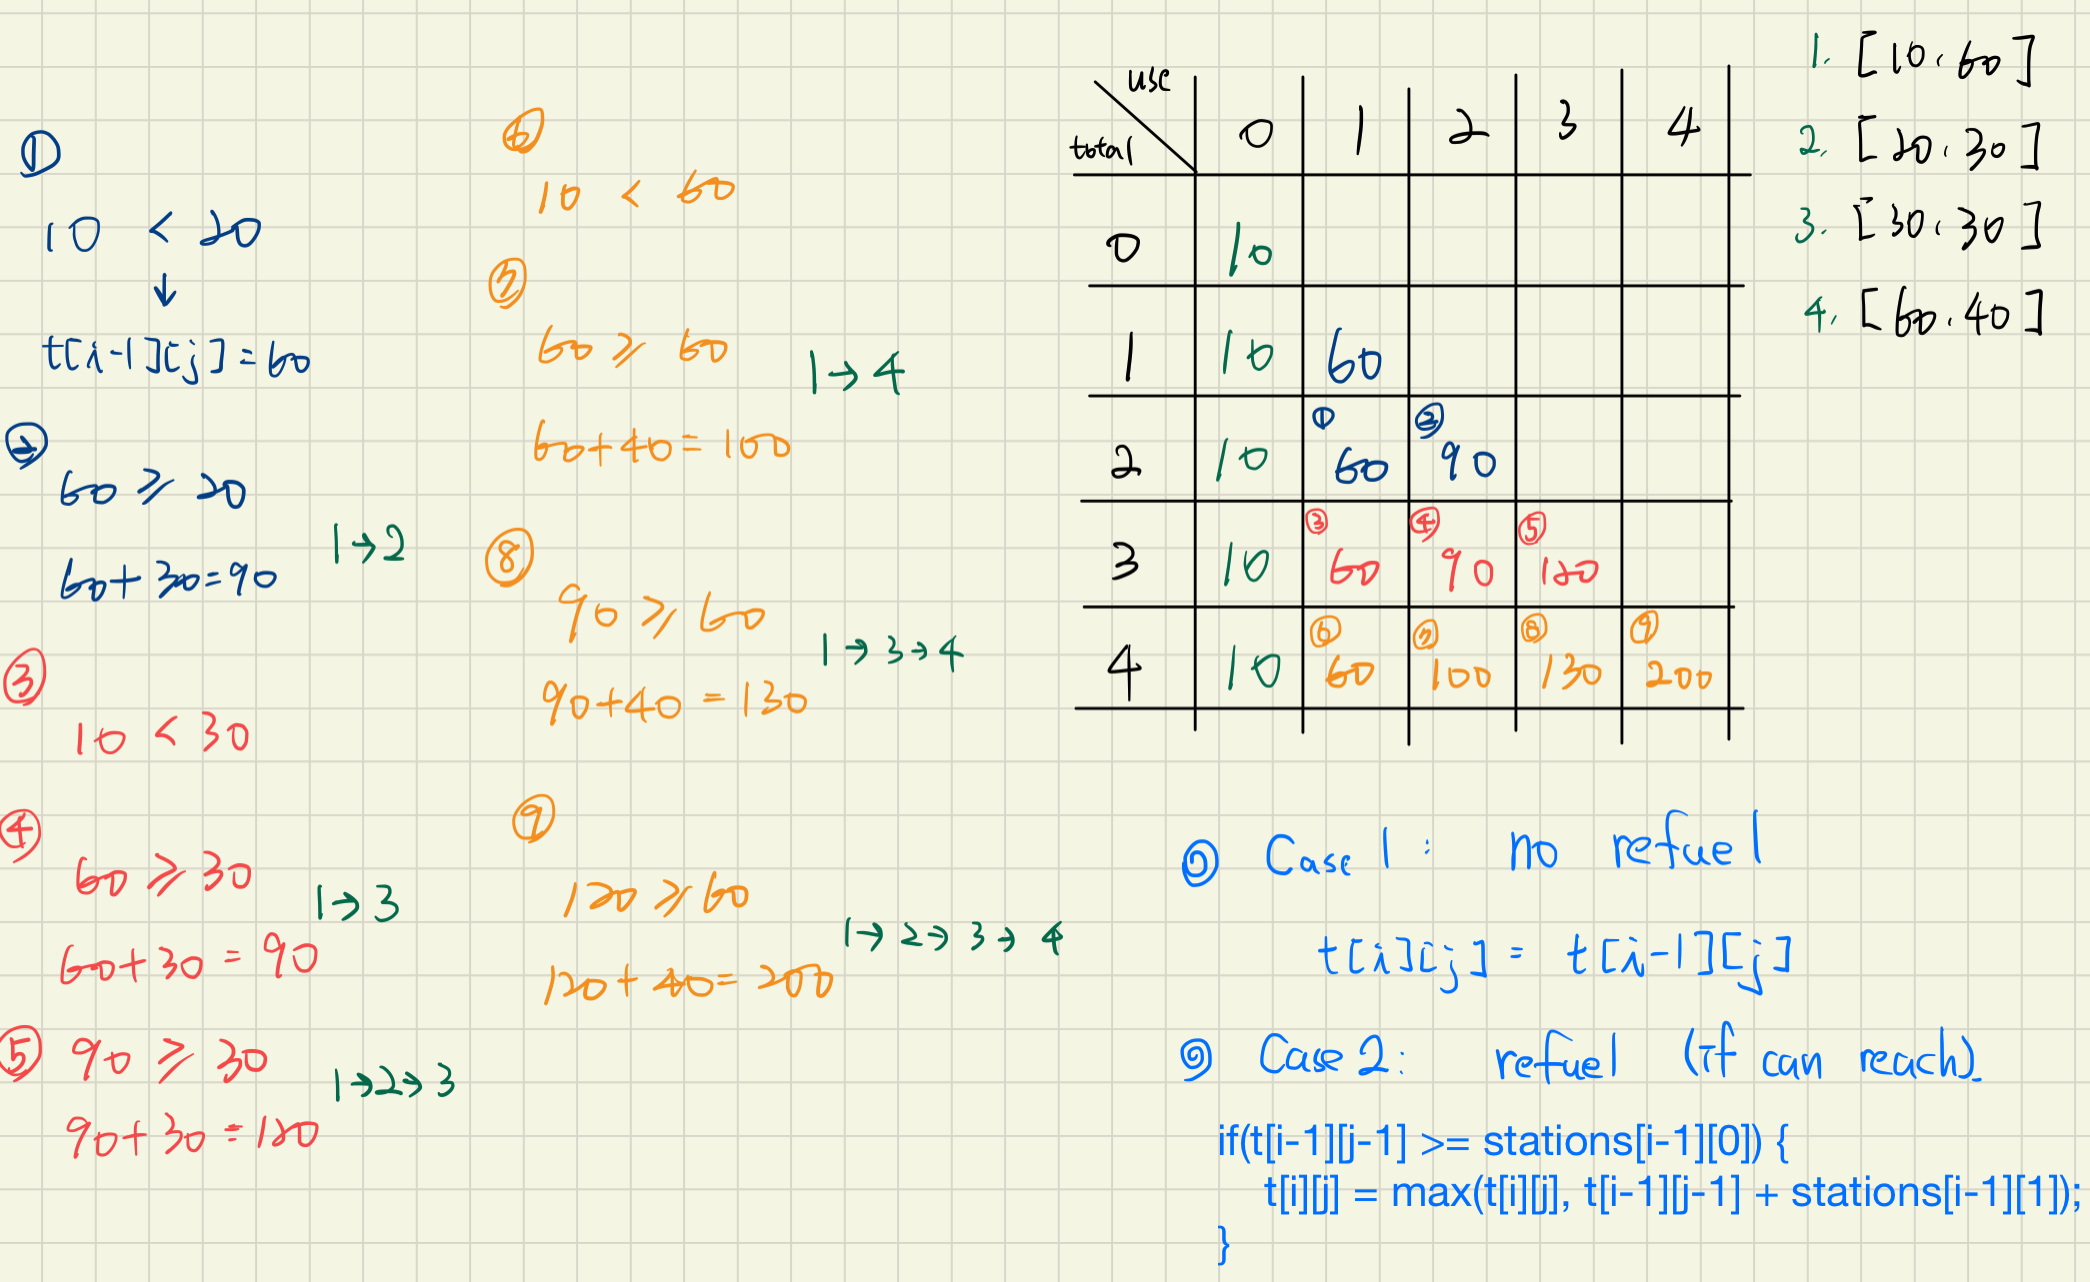 ①
10 < 20
↓
t[i-1][j] = 60
②
60 ≥ 20
60+30=90
1→2
③
10 < 30
④
60 ≥ 30
60+30 = 90
1→3
⑤ 90 ≥ 30
90+30=120
1→2→3
⑥
10 < 60
⑦
60 ≥ 60
60+40=100
1→4
⑧
90 ≥ 60
90+40 = 130
1→3→4
⑨
120 ≥ 60
120+40=200
1→2→3→4
use
total 0 1 2 3 4
0 10
1 10 60
① ②
2 10 60 90
③ ④ ⑤
3 10 60 90 120
⑥ ⑦ ⑧ ⑨
4 10 60 100 130 200
1. [10, 60]
2. [20, 30]
3. [30, 30]
4. [60, 40]
Case 1: no refuel
t[i][j] = t[i-1][j]
Case 2: refuel (if can reach)
if(t[i-1][j-1] >= stations[i-1][0]) {
t[i][j] = max(t[i][j], t[i-1][j-1] + stations[i-1][1]);
}